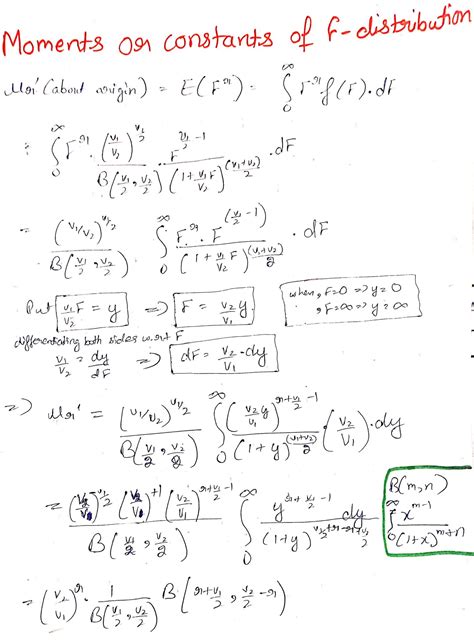 Moments or constants of F-distribution
μr' (about origin) = E(F^r) = ∫₀^∞ F^r f(F).dF
= ∫₀^∞ F^r. (v₁/v₂)^(v₁/2) F^(v₁/2 -1) / B(v₁/2, v₂/2) (1+v₁/v₂ F)^((v₁+v₂)/2) .dF
= (v₁/v₂)^(v₁/2) / B(v₁/2, v₂/2) ∫₀^∞ F^r. F^(v₁/2 -1) / (1+ v₁/v₂ F)^((v₁+v₂)/2) . dF
Put v₁/v₂ F = y => F = v₂/v₁ y
when, F=0 => y=0
, F=∞ => y=∞
differentiating both sides w.r.t F
v₁/v₂ = dy/dF => dF = v₂/v₁ .dy
=> μr' = (v₁/v₂)^(v₁/2) / B(v₁/2, v₂/2) ∫₀^∞ (v₂/v₁ y)^(r+v₁/2 -1) / (1+y)^((v₁+v₂)/2) . (v₂/v₁) .dy
= (v₂/v₁)^(-v₁/2) (v₂/v₁)^(+1) (v₂/v₁)^(r+v₁/2 -1) / B(v₁/2, v₂/2) ∫₀^∞ y^(r+v₁/2 -1) dy / (1+y)^(v₂/2 -r+r+v₁/2)
B(m,n)
∫₀^∞ x^(m-1) / (1+x)^(m+n)
= (v₂/v₁)^r . 1 / B(v₁/2, v₂/2) B(r+v₁/2, v₂/2 -r)